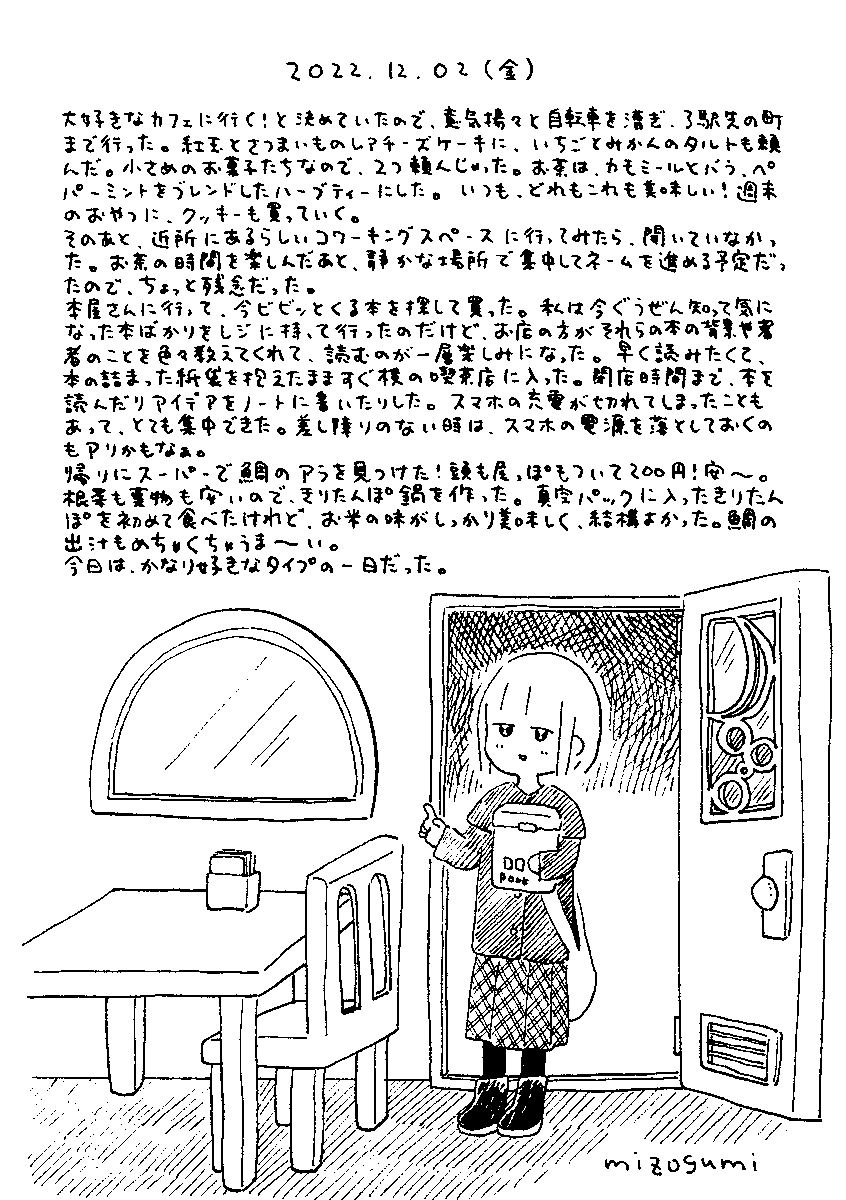 2022.12.02(金)
大好きなカフェに行く!と決めていたので、意気揚々と自転車を漕ぎ、3駅先の町
まで行った。紅玉とさつまいものレアチーズケーキに、いちごとみかんのタルトも頼
んだ。小さめのお菓子たちなので、2つ頼んじゃった。お茶は、カモミールとバラ、ペ
パーミントをブレンドしたハーブティーにした。いつも、どれもこれも美味しい!週末
のおやつに、クッキーも買っていく。
そのあと、近所にあるらしいコワーキングスペースに行ってみたら、開いていなかっ
た。お茶の時間を楽しんだあと、静かな場所で集中してネームを進める予定だっ
たので、ちょっと残念だった。
本屋さんに行って、今ビビッとくる本を探して買った。私は今ぐうぜん知って気に
なった本ばかりをレジに持って行ったのだけど、お店の方がそれらの本の背景や著
者のことを色々教えてくれて、読むのが一層楽しみになった。早く読みたくて、
本の詰まった紙袋を抱えたまますぐ横の喫茶店に入った。閉店時間まで、本を
読んだりアイデアをノートに書いたりした。スマホの充電が切れてしまったことも
あって、とても集中できた。差し障りのない時は、スマホの電源を落としておくの
もアリかもなぁ。
帰りにスーパーで鯛のアラを見つけた!頭も尾っぽもついて200円!安〜。
根菜も葉物も安いので、きりたんぽ鍋を作った。真空パックに入ったきりたん
ぽを初めて食べたけれど、お米の味がしっかり美味しく、結構よかった。鯛の
出汁もめちゃくちゃうま〜い。
今日は、かなり好きなタイプの一日だった。
DO
mizosumi